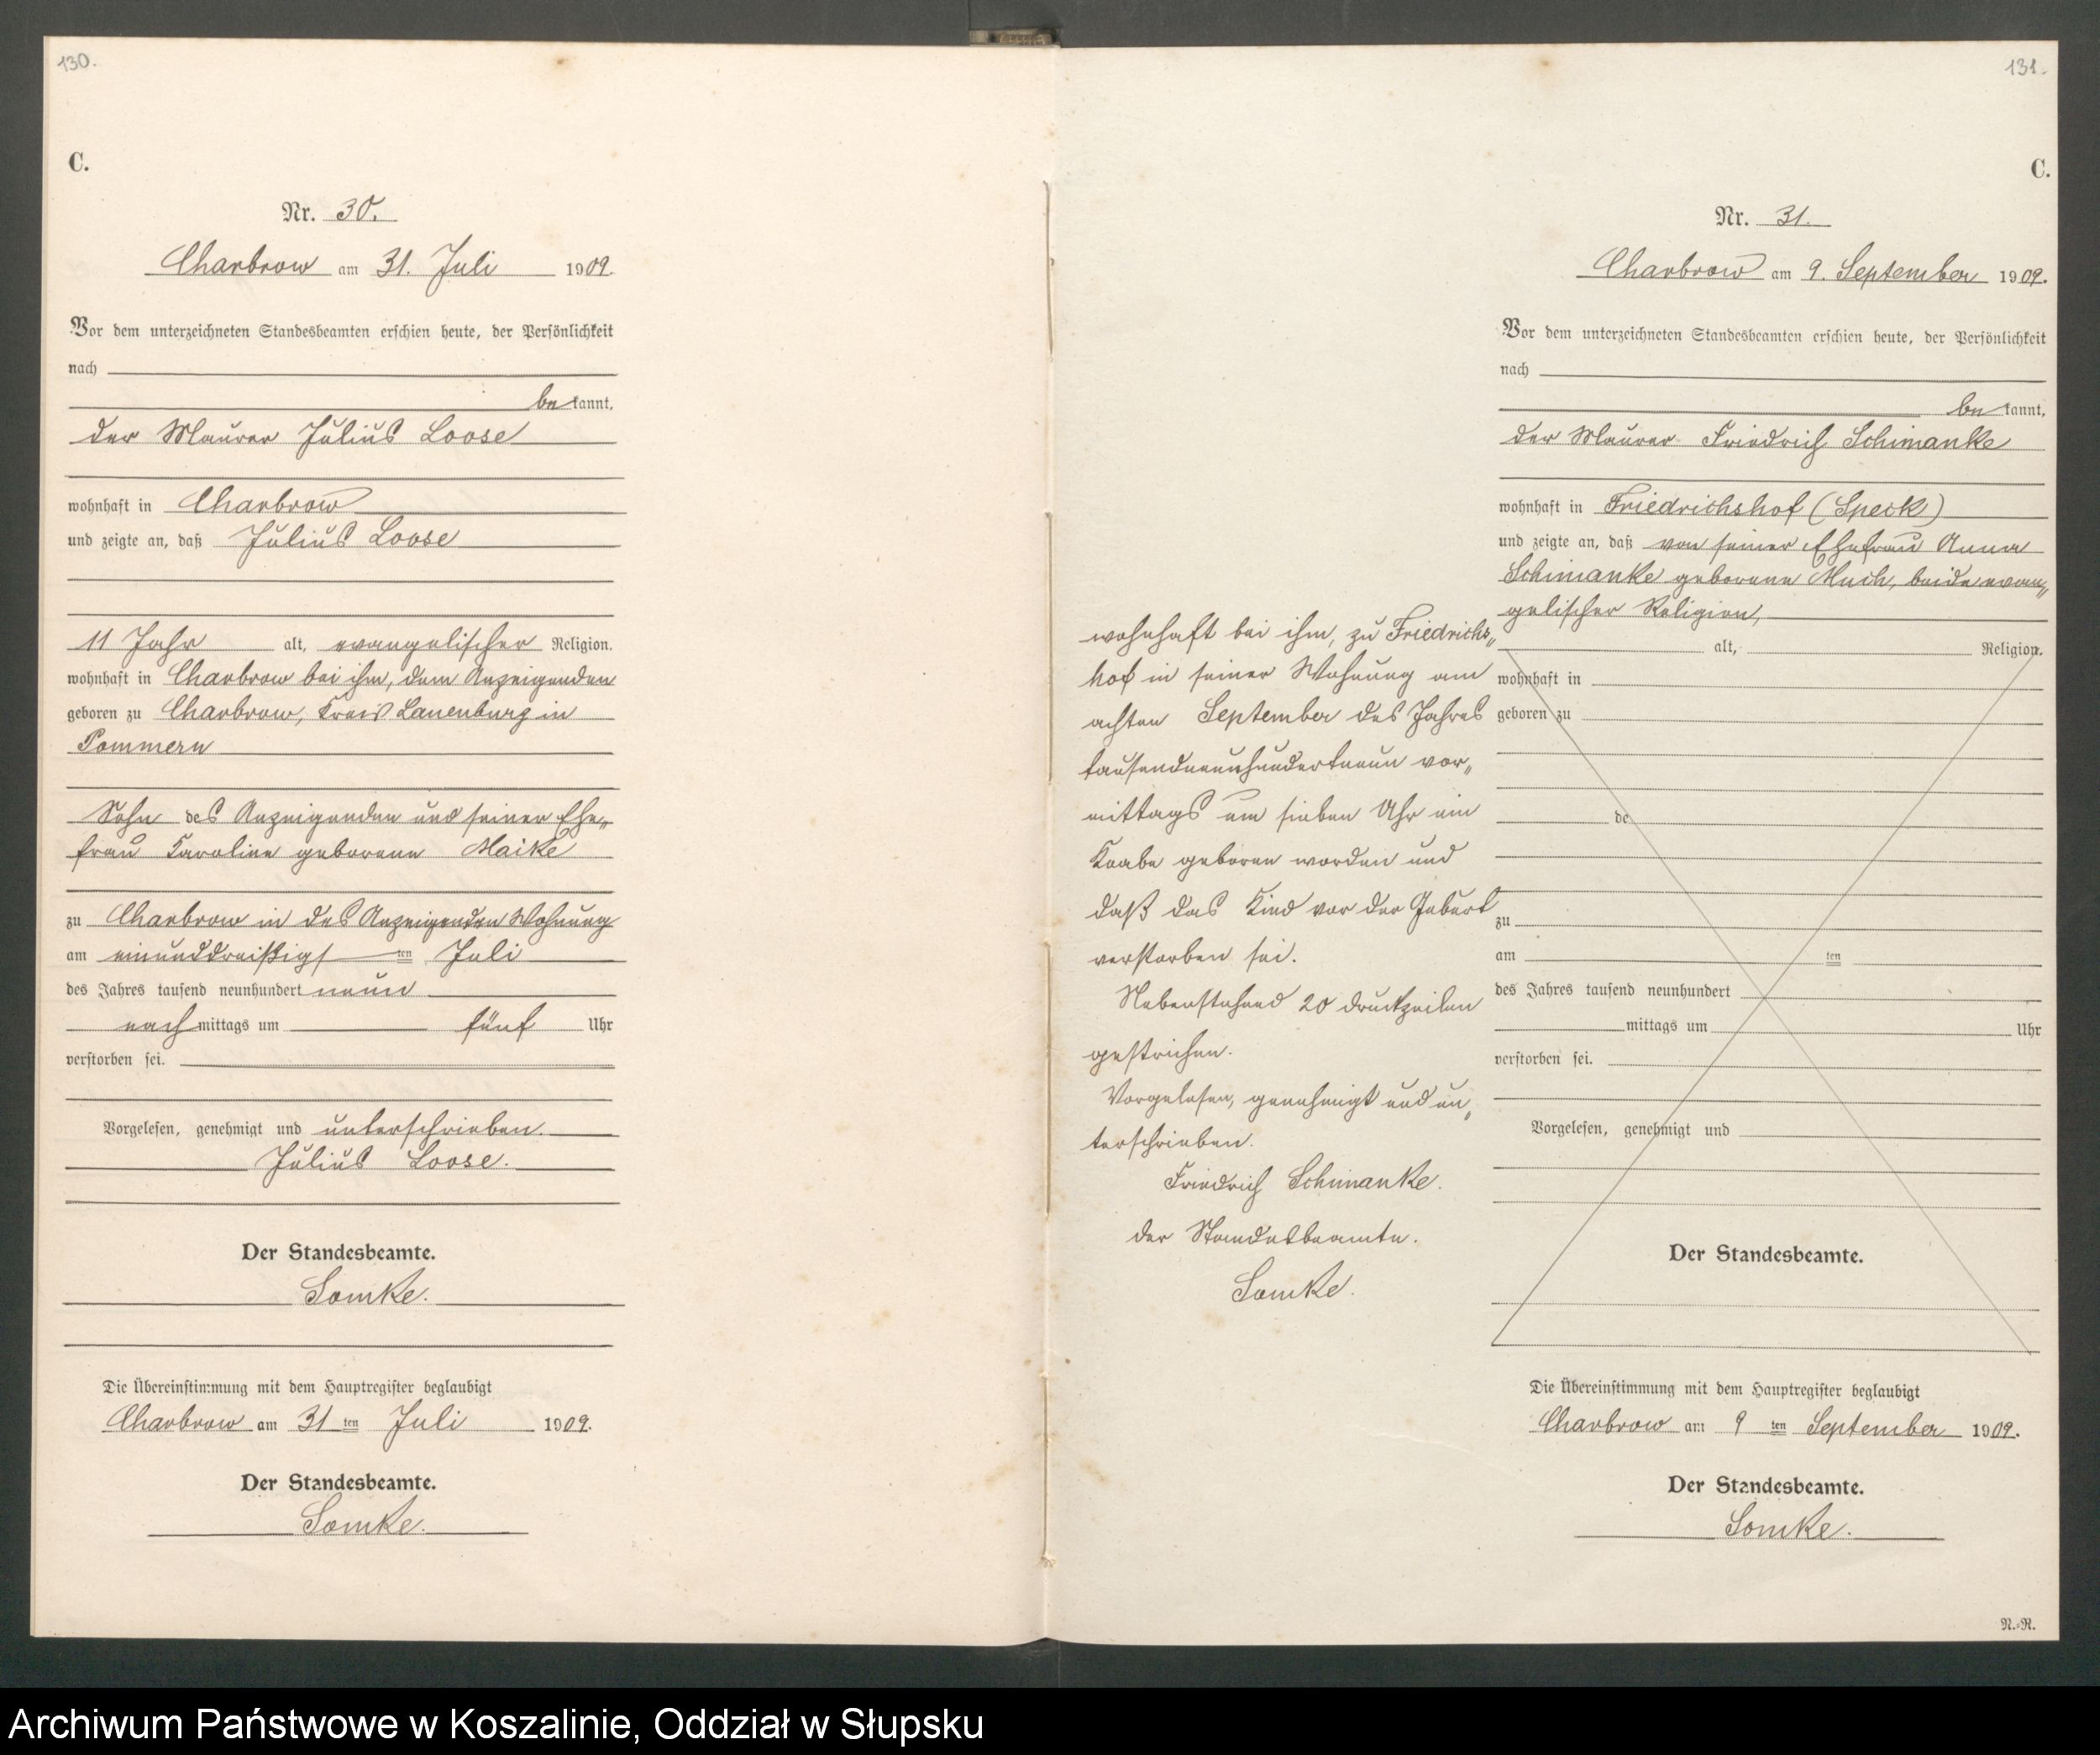 130.
C.
Nr. 30.
Charbrow am 31. Juli 1909.
Vor dem unterzeichneten Standesbeamten erschien heute, der Persönlichkeit
nach
be kannt,
der Maurer Julius Loose
wohnhaft in Charbrow
und zeigte an, daß Julius Loose
11 Jahr alt, evangelischer Religion,
wohnhaft in Charbrow bei ihm, dem Anzeigenden
geboren zu Charbrow, Kreis Lauenburg in
Pommern
Sohn des Anzeigenden und seiner Ehe„
frau Karoline geborene Maike
zu Charbrow in des Anzeigenden Wohnung
am einunddreißigs ten Juli
des Jahres tausend neunhundert neun
nach mittags um fünf Uhr
verstorben sei.
Vorgelesen, genehmigt und unterschrieben.
Julius Loose.
Der Standesbeamte.
Somke.
Die Übereinstimmung mit dem Hauptregister beglaubigt
Charbrow am 31 ten Juli 1909.
Der Standesbeamte.
Somke.
131.
C.
Nr. 31.
Charbrow am 9. September 1909.
Vor dem unterzeichneten Standesbeamten erschien heute, der Persönlichkeit
nach
be kannt,
der Maurer Friedrich Schimanke
wohnhaft in Friedrichshof (Speck)
und zeigte an, daß von seiner Ehefrau Anna
Schimanke geborene Much, beide evan„
gelischer Religion,
wohnhaft bei ihm, zu Friedrichs„
hof in seiner Wohnung am
achten September des Jahres
tausendneunhundertneun vor„
mittags um sieben Uhr ein
Knabe geboren worden und
daß das Kind vor der Geburt
verstorben sei.
Nebenstehend 20 Druckzeilen
gestrichen.
Vorgelesen, genehmigt und un„
terschrieben.
Friedrich Schimanke.
der Standesbeamte.
Somke.
alt, Religion,
wohnhaft in
geboren zu
de
zu
am ten
des Jahres tausend neunhundert
mittags um Uhr
verstorben sei.
Vorgelesen, genehmigt und
Der Standesbeamte.
Die Übereinstimmung mit dem Hauptregister beglaubigt
Charbrow am 9 ten September 1909.
Der Standesbeamte.
Somke.
N.=R.
Archiwum Państwowe w Koszalinie, Oddział w Słupsku